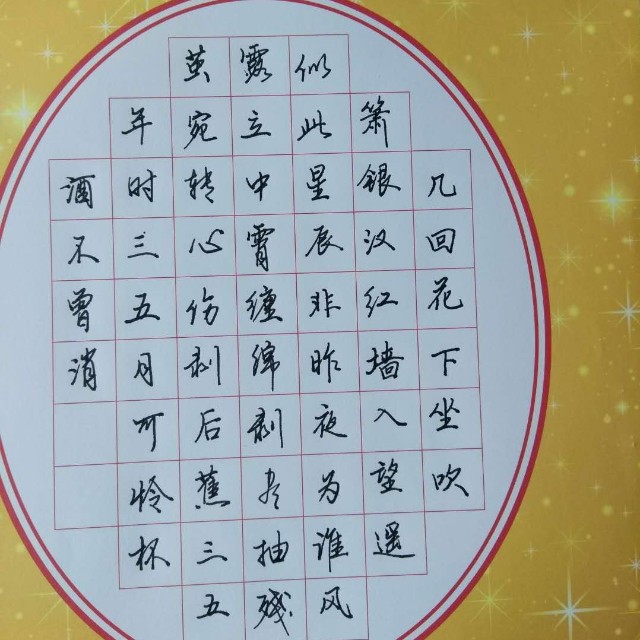 几回花下坐吹
箫银汉红墙入望遥
似此星辰非昨夜为谁风
露立中霄缠绵剥尽抽残
茧宛转心伤剥后蕉三五
年时三五月可怜杯
酒不曾消